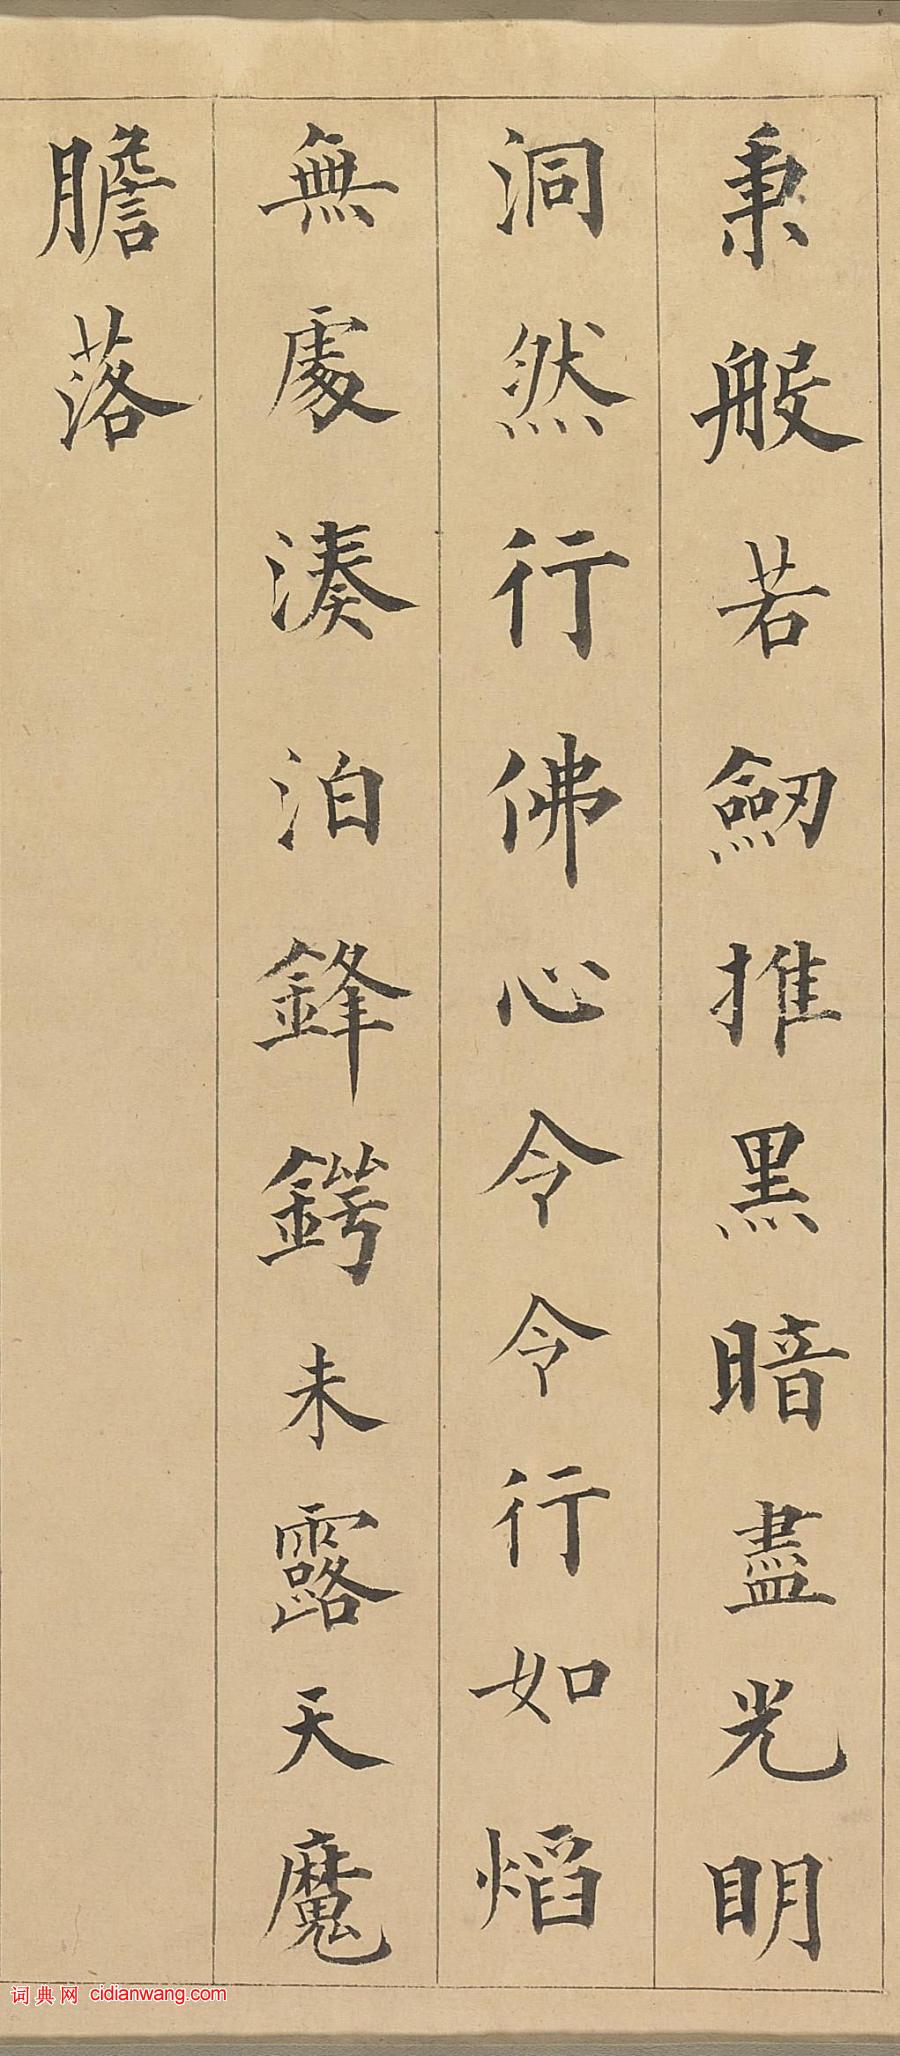 秉般若劒推黑暗盡光明
洞然行佛心令令行如熖
無處湊泊鋒鍔未露天魔
膽落
词典网 cidianwang.com